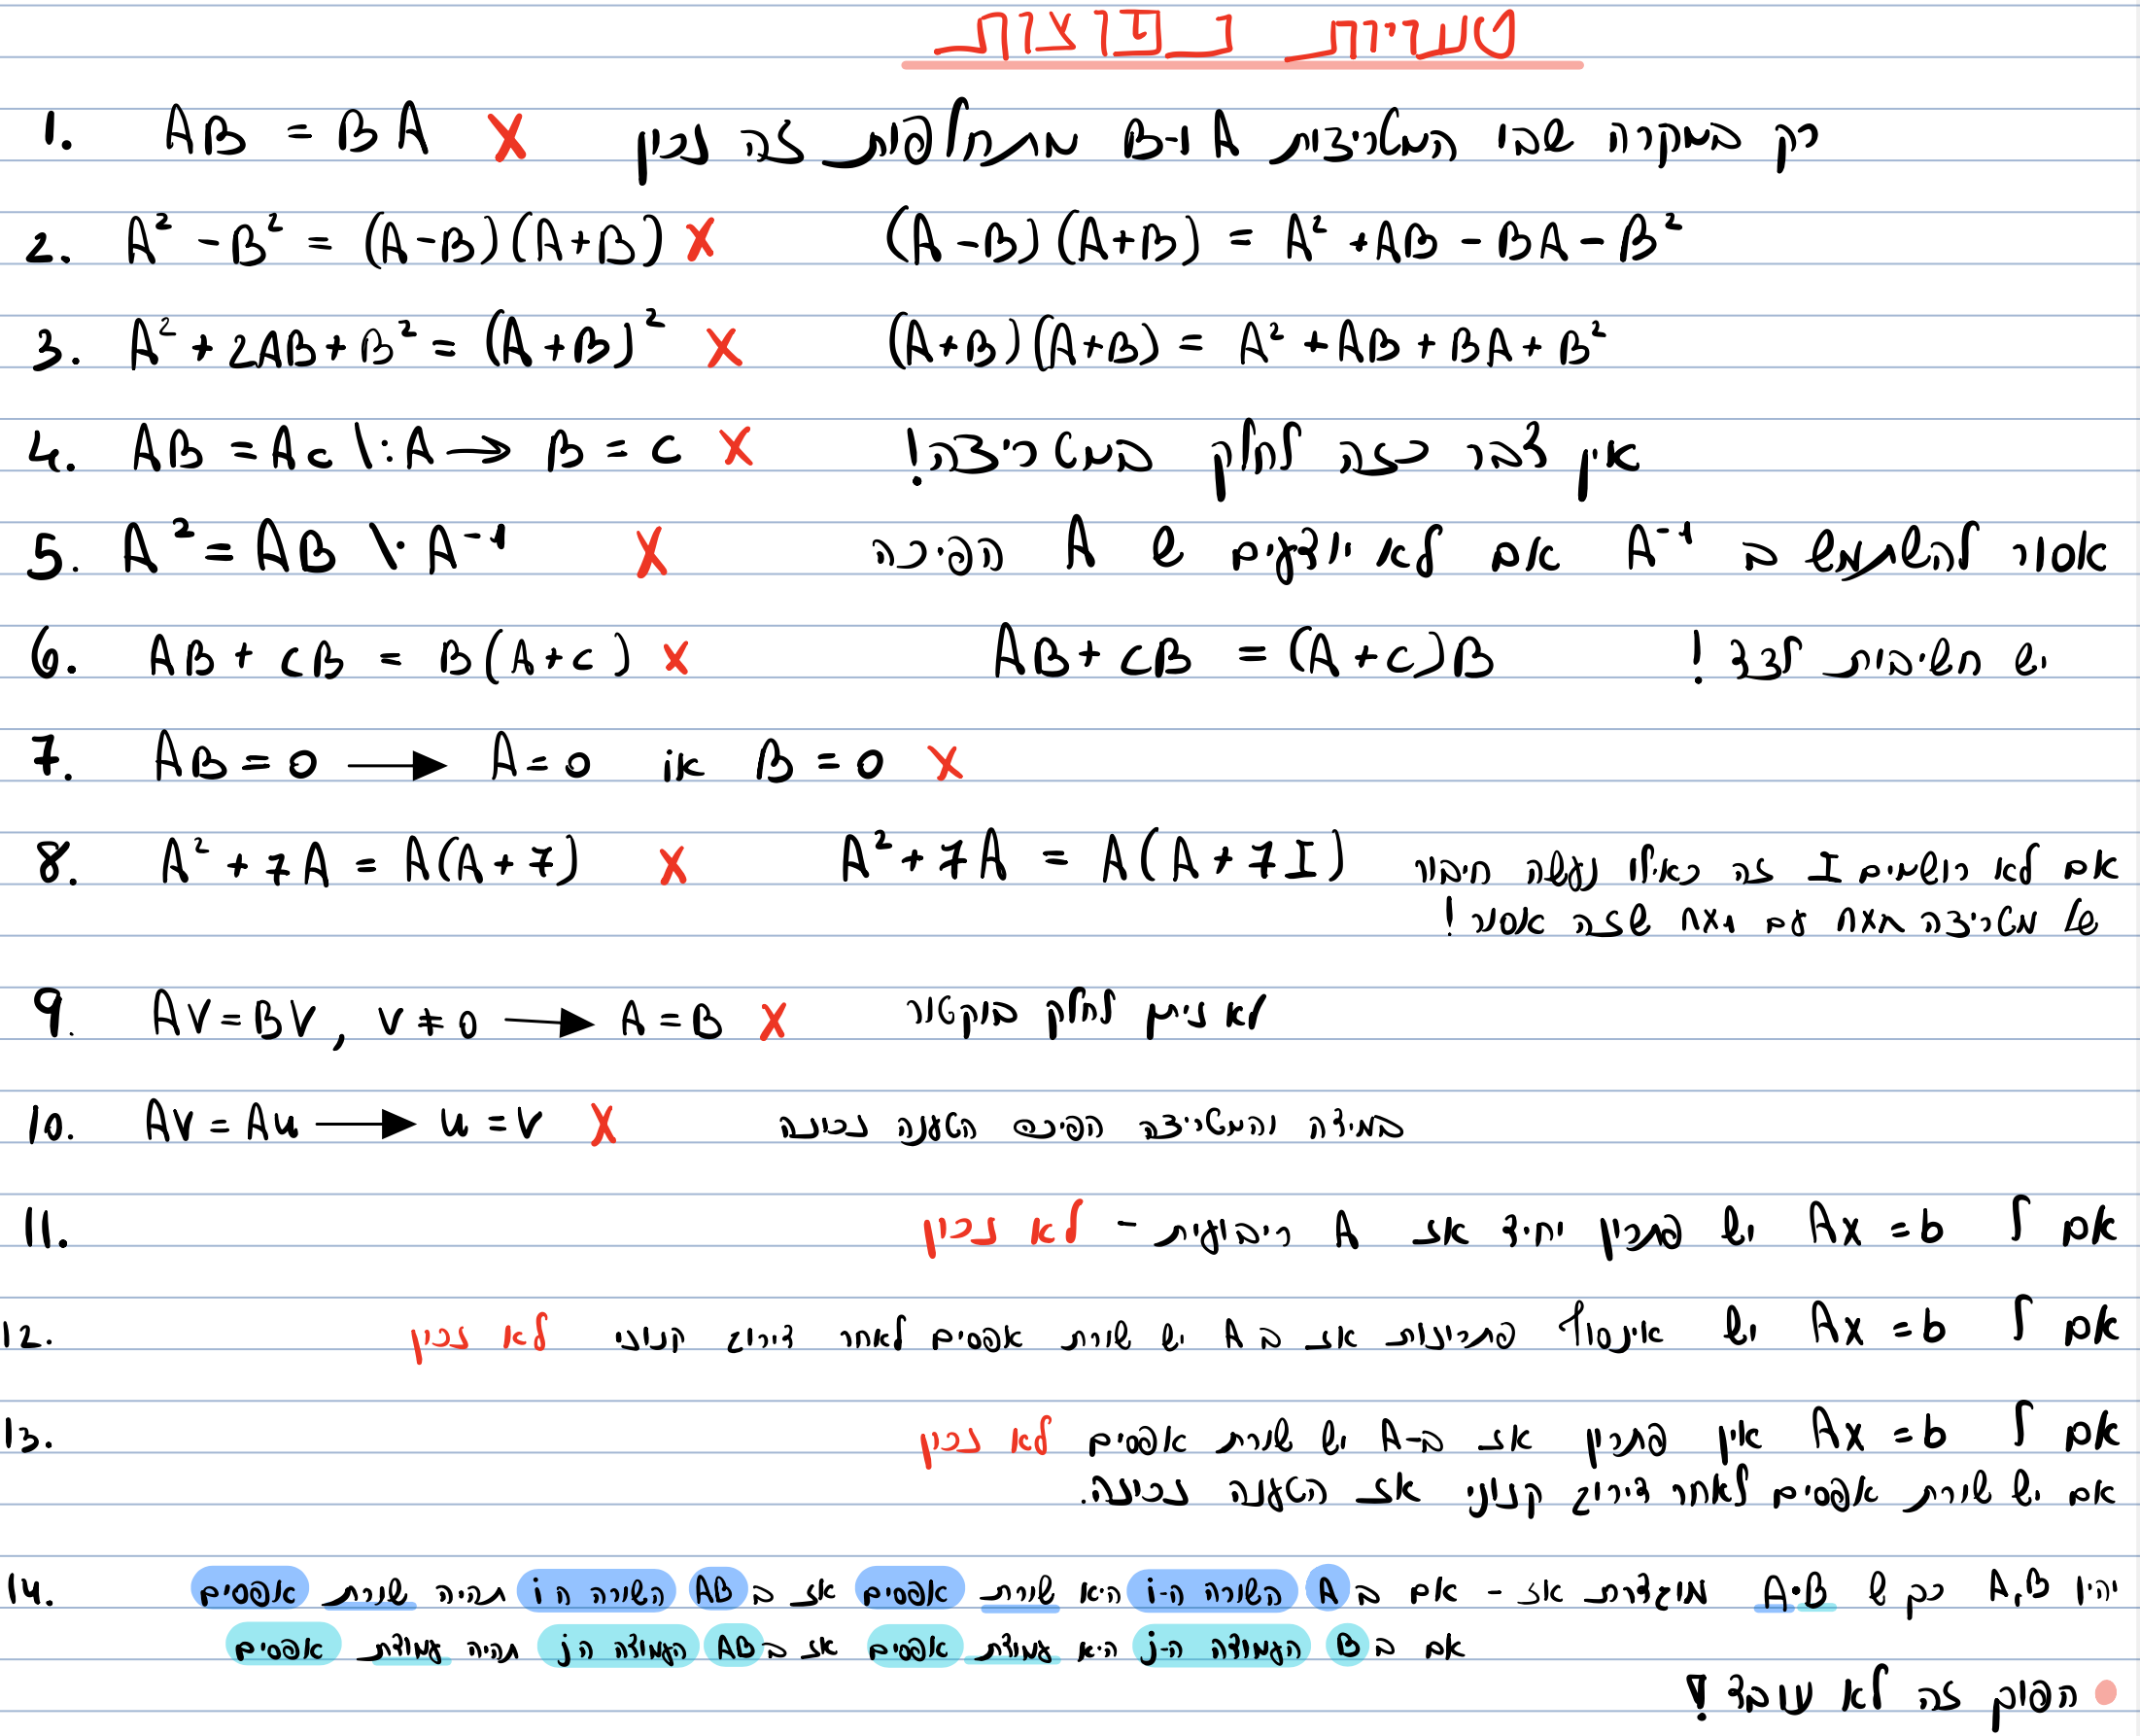 טעויות נפוצות
1. AB = BA X רק במקרה שבו המטריצות A ו-B מתחלפות זה נכון
2. A² - B² = (A-B)(A+B) X (A-B)(A+B) = A² + AB - BA - B²
3. A² + 2AB + B² = (A+B)² X (A+B)(A+B) = A² + AB + BA + B²
4. AB = Ac \:A → B = c X אין דבר כזה לחלק במטריצה!
5. A² = AB \· A⁻¹ X אסור להשתמש ב A⁻¹ אם לא יודעים ש A הפיכה
6. AB + cB = B(A+c) X AB + cB = (A+c)B יש חשיבות לצד!
7. AB = 0 → A = 0 או B = 0 X
8. A² + 7A = A(A+7) X A² + 7A = A(A+7I) אם לא רושמים I זה כאילו נעשה חיבור
של מטריצה nxn עם 1x1 שזה אסור!
9. AV = BV, V ≠ 0 → A = B X לא ניתן לחלק בוקטור
10. AV = Au → u = v X במידה והמטריצה הפיכה הטענה נכונה
11. אם ל Ax = b יש פתרון יחיד אז A ריבועית - לא נכון
12. אם ל Ax = b יש אינסוף פתרונות אז ב A יש שורת אפסים לאחר דירוג קנוני לא נכון
13. אם ל Ax = b אין פתרון אז ב-A יש שורת אפסים לא נכון
אם יש שורת אפסים לאחר דירוג קנוני אז הטענה נכונה.
14. יהיו A,B כך ש A·B מוגדרת אז - אם ב A השורה ה-i היא שורת אפסים אז ב AB השורה ה i תהיה שורת אפסים
אם ב B העמודה ה-j היא עמודת אפסים אז ב AB העמודה ה j תהיה עמודת אפסים
הפוך זה לא עובד!